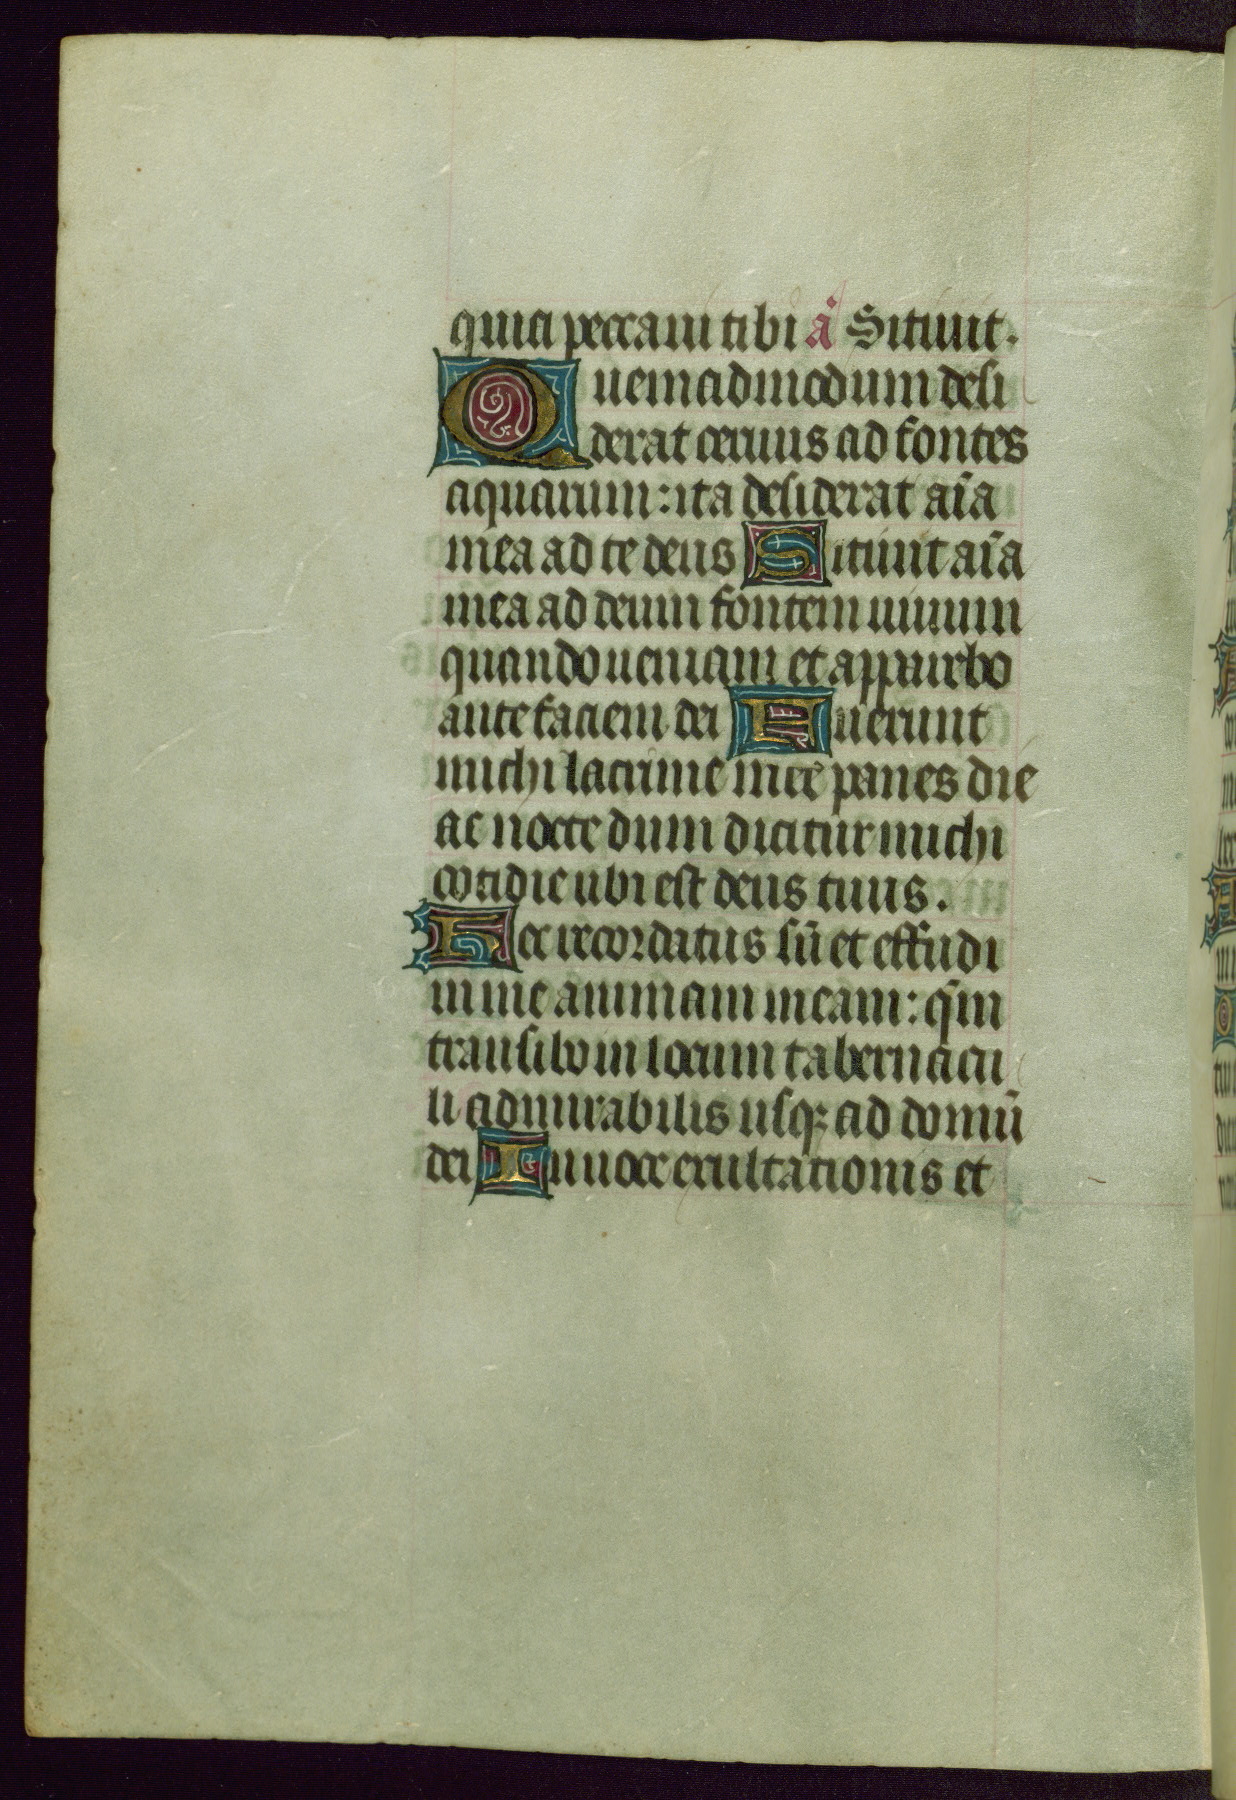 quia peccaui tibi a Sitiuit.
Quemadmodum desi
derat ceruus ad fontes
aquarum: ita desiderat aīa
mea ad te deus Sitiuit aīa
mea ad deum fontem uiuum
quando ueniam et apparebo
ante faciem dei Fuerunt
michi lacrime mee panes die
ac nocte dum dicitur michi
cotidie ubi est deus tuus.
Hec recordatus sū et effudi
in me animam meam: qm̄
transibo in locum tabernacu
li admirabilis usqꝫ ad domū
dei In uoce exultationis et